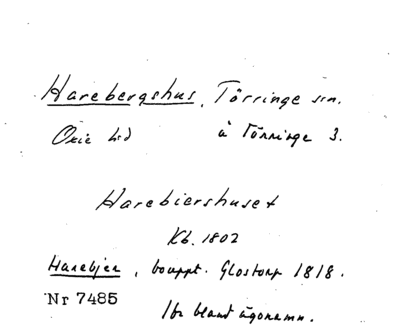 Harebergshus, Törringe sn.
Oxie hd å Törringe 3.
Harebiershuset
Kb. 1802
Harebjer, bouppt. Glostorp 1818.
Nr 7485
Jfr bland ägonamn.